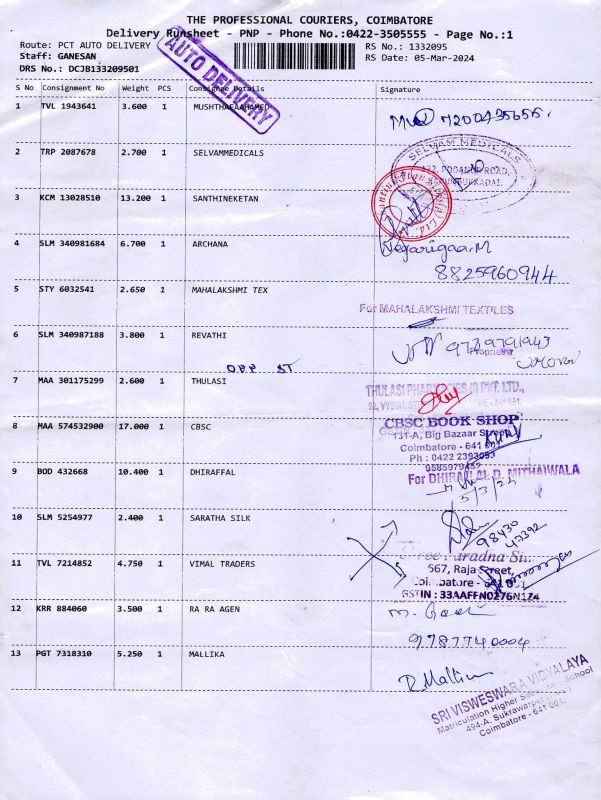 THE PROFESSIONAL COURIERS, COIMBATORE
Delivery Runsheet - PNP - Phone No.:0422-3505555 - Page No.:1
Route: PCT AUTO DELIVERY
RS No.: 1332095
Staff: GANESAN
RS Date: 05-Mar-2024
DRS No.: DCJB133209501
AUTO DELIVERY
S No Consignment No Weight PCS Consignee Details Signature
1 TVL 1943641 3.600 1
2 TRP 2087678 2.700 1 SELVAMMEDICALS
SELVAM MEDICALS
ROAD,
3 KCM 13028510 13.200 1 SANTHINEKETAN
4 SLM 340981684 6.700 1 ARCHANA
8825960944
5 STY 6032541 2.650 1 MAHALAKSHMI TEX
For MAHALAKSHMI TEXTILES
6 SLM 340987188 3.800 1 REVATHI
Proprietor
OPP ST
7 MAA 301175299 2.600 1 THULASI
THULASI PVT. LTD.,
8 MAA 574532900 17.000 1 CBSC
CBSC BOOK SHOP
131-A, Big Bazaar Street,
Coimbatore - 641 001
Ph : 0422 2393093
9585979452
9 BOD 432668 10.400 1 DHIRAFFAL
For DHIRAJLAL D. MITHAIWALA
10 SLM 5254977 2.400 1 SARATHA SILK
98430
47392
11 TVL 7214852 4.750 1 VIMAL TRADERS
567, Raja Street,
Coimbatore - 641 001
GSTIN : 33AAFFN0276N1Z4
12 KRR 884060 3.500 1 RA RA AGEN
9787740004
13 PGT 7318310 5.250 1 MALLIKA
SRI VISWESWARA VIDYALAYA
Matriculation Higher Secondary School
494-A, Sukrawarpet Street
Coimbatore - 641 001.